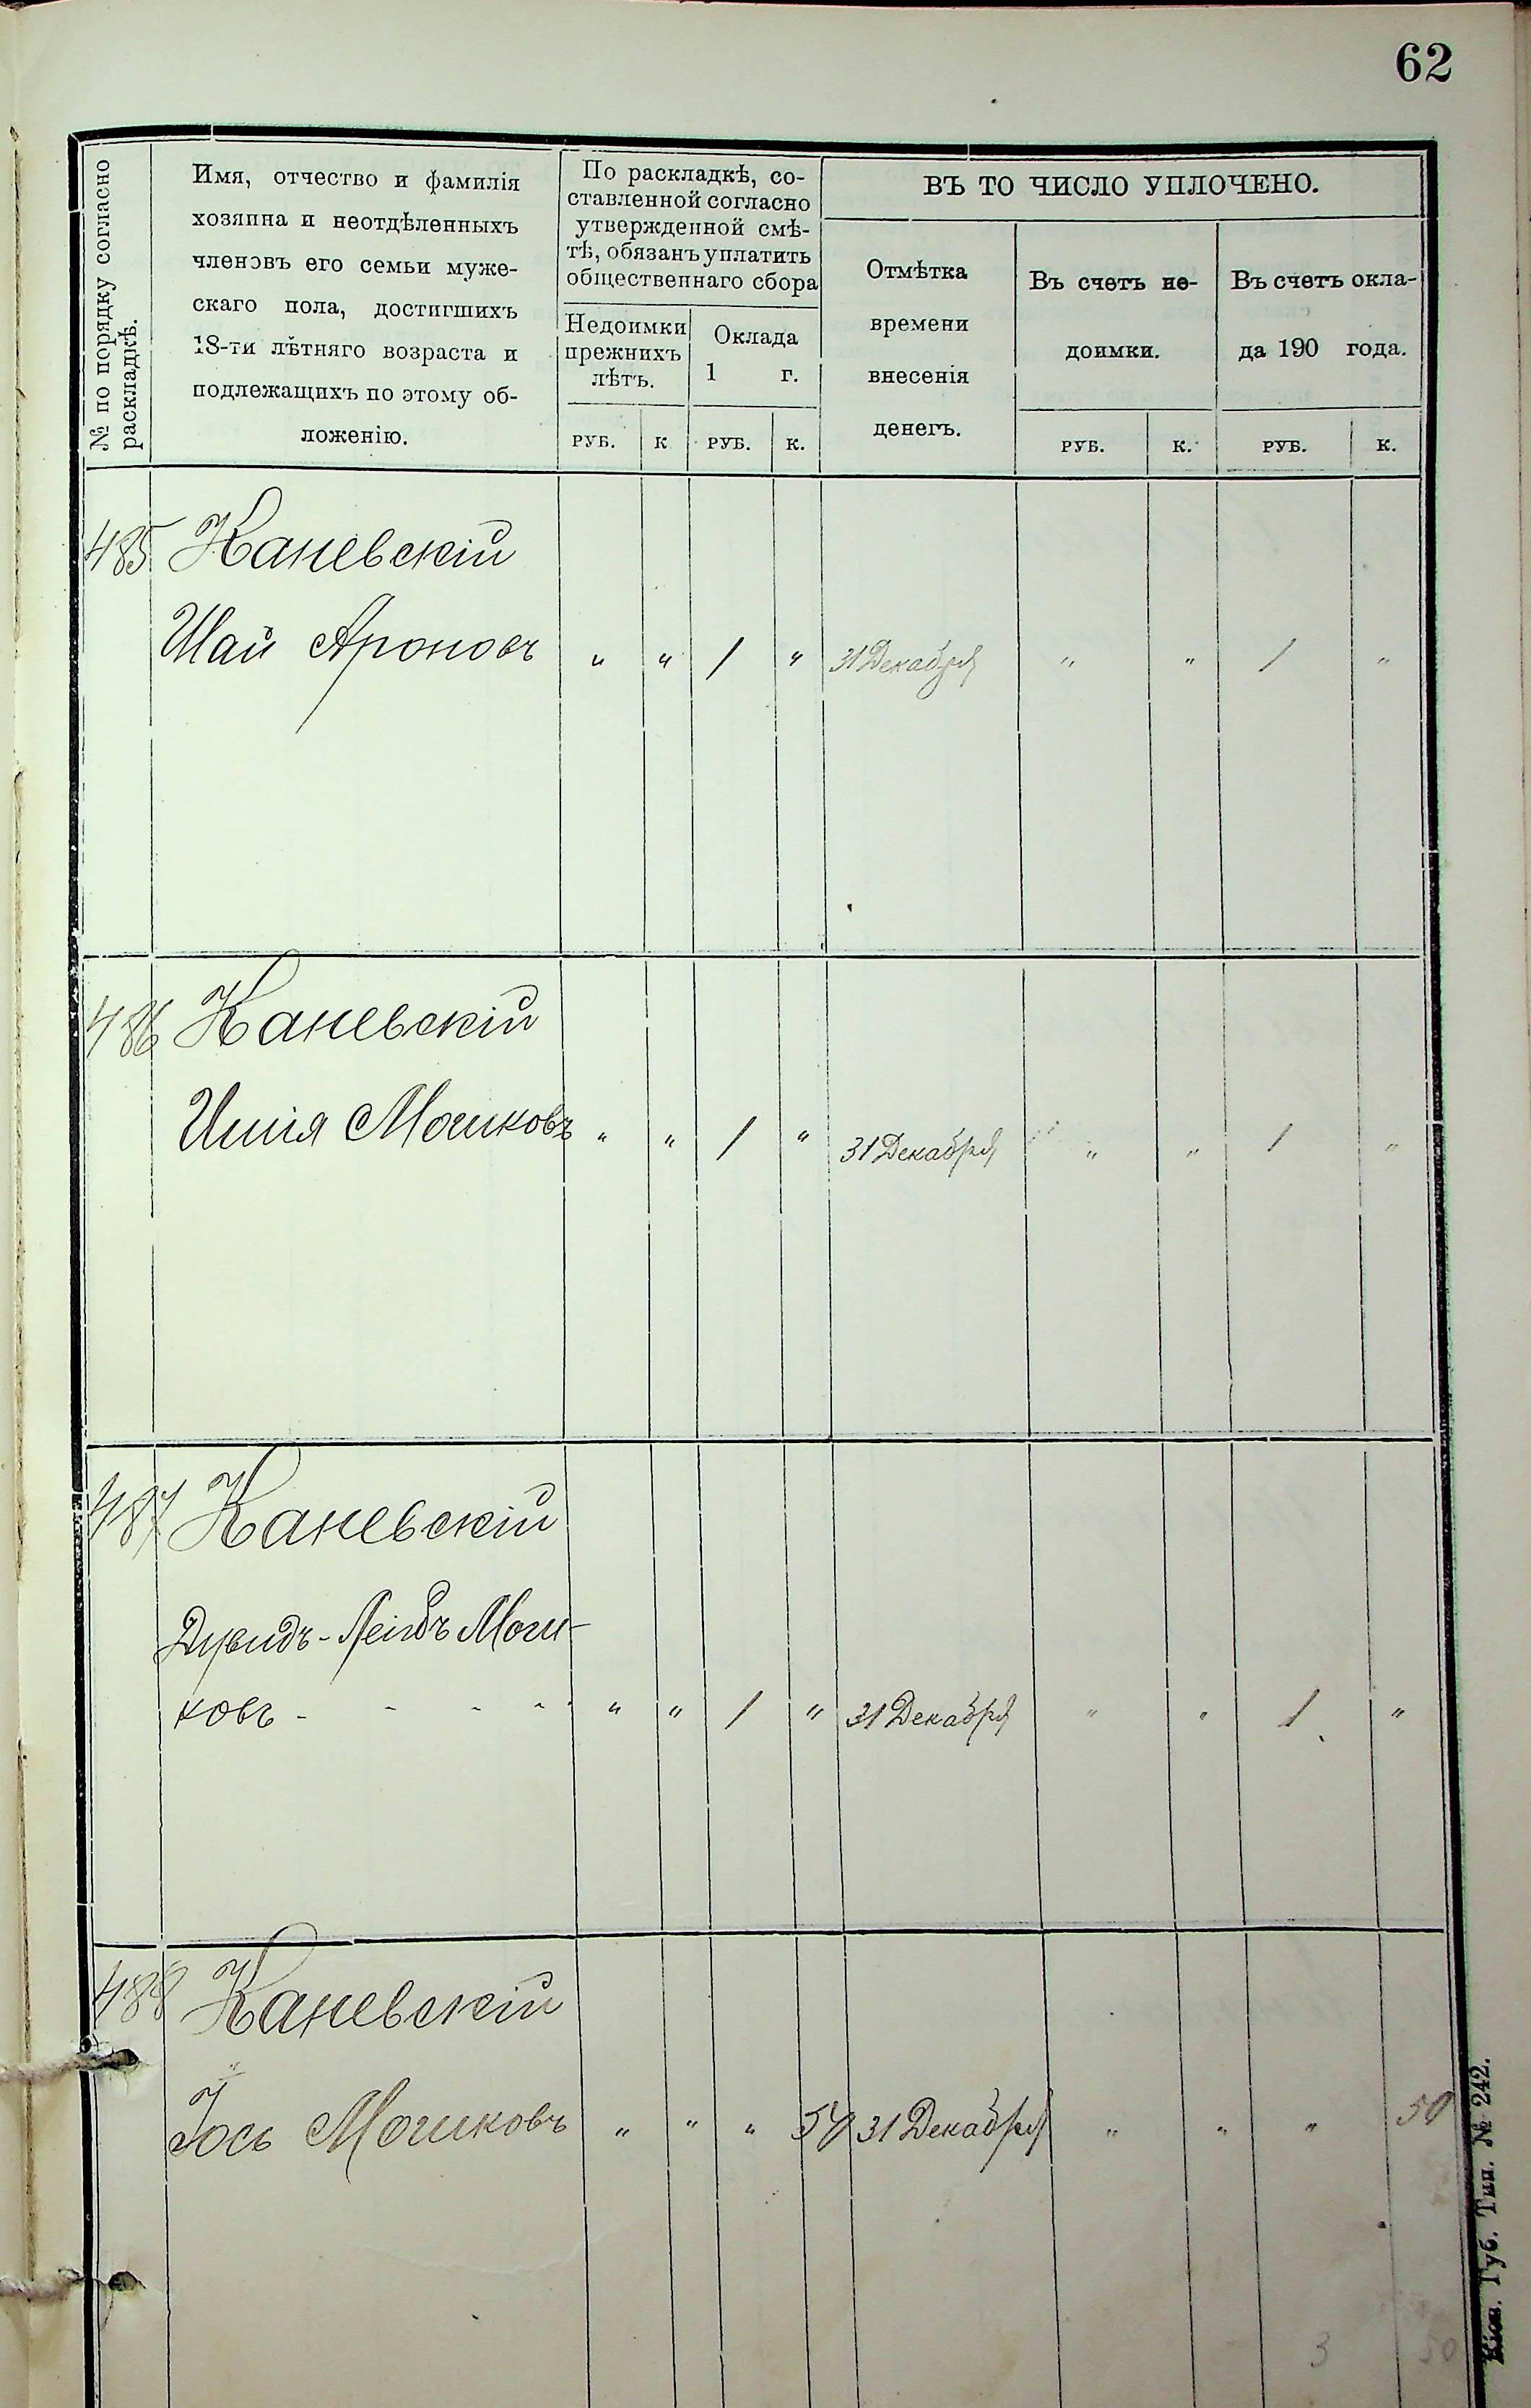 62
№ по порядку согласно
раскладкѣ.
Имя, отчество и фамилія
хозяина и неотдѣленныхъ
членовъ его семьи муже-
скаго пола, достигшихъ
18-ти лѣтняго возраста и
подлежащихъ по этому об-
ложенію.
По раскладкѣ, со-
ставленной согласно
утвержденной смѣ-
тѣ, обязанъ уплатить
общественнаго сбора
Недоимки
прежнихъ
лѣтъ.
Оклада
1 г.
РУБ. К РУБ. К.
ВЪ ТО ЧИСЛО УПЛОЧЕНО.
Отмѣтка
времени
внесенія
денегъ.
Въ счетъ не-
доимки.
Въ счетъ окла-
да 190 года.
РУБ. К. РУБ. К.
485 Каневскій
Шай Ароновъ " " 1 " 31 Декабря " " 1 "
486 Каневскій
Ишія Мошковъ " " 1 " 31 Декабря " " 1 "
487 Каневскій
Дувидъ-Лейбъ Мош-
ковъ - - - - " " 1 " 31 Декабря " " 1 "
488 Каневскій
Іось Мошковъ " " " 50 31 Декабря " " " 50
3 50
Кіев. Губ. Тип. № 242.